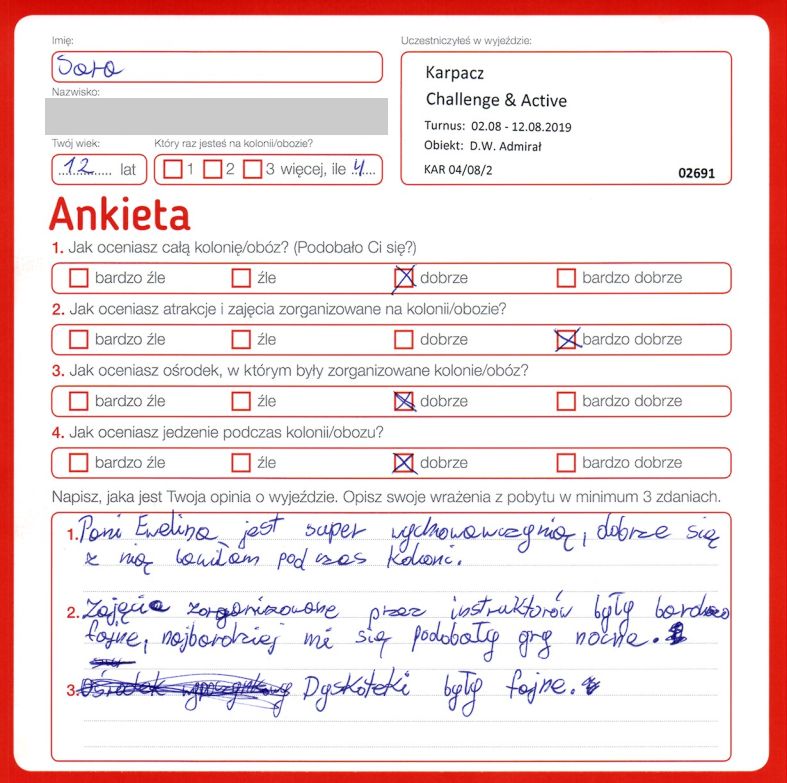 Imię:
Sara
Nazwisko:
Twój wiek:
12 lat
Który raz jesteś na kolonii/obozie?
1 2 3 więcej, ile 4
Uczestniczyłeś w wyjeździe:
Karpacz
Challenge & Active
Turnus: 02.08 - 12.08.2019
Obiekt: D.W. Admirał
KAR 04/08/2 02691
Ankieta
1. Jak oceniasz całą kolonię/obóz? (Podobało Ci się?)
bardzo źle źle dobrze bardzo dobrze
2. Jak oceniasz atrakcje i zajęcia zorganizowane na kolonii/obozie?
bardzo źle źle dobrze bardzo dobrze
3. Jak oceniasz ośrodek, w którym były zorganizowane kolonie/obóz?
bardzo źle źle dobrze bardzo dobrze
4. Jak oceniasz jedzenie podczas kolonii/obozu?
bardzo źle źle dobrze bardzo dobrze
Napisz, jaka jest Twoja opinia o wyjeździe. Opisz swoje wrażenia z pobytu w minimum 3 zdaniach.
1. Pani Ewelina jest super wychowawczynią, dobrze się
z nią bawiłam podczas koloni.
2. Zajęcia zorganizowane przez instruktorów były bardzo
fajne, najbardziej mi się podobały gry nocne.
3. Ośrodek wypoczynkowy Dyskoteki były fajne.